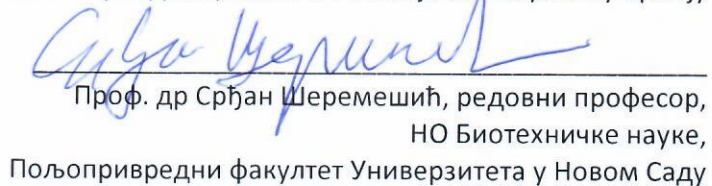 Срђан Шеремешић
Проф. др Срђан Шеремешић, редовни професор,
НО Биотехничке науке,
Пољопривредни факултет Универзитета у Новом Саду